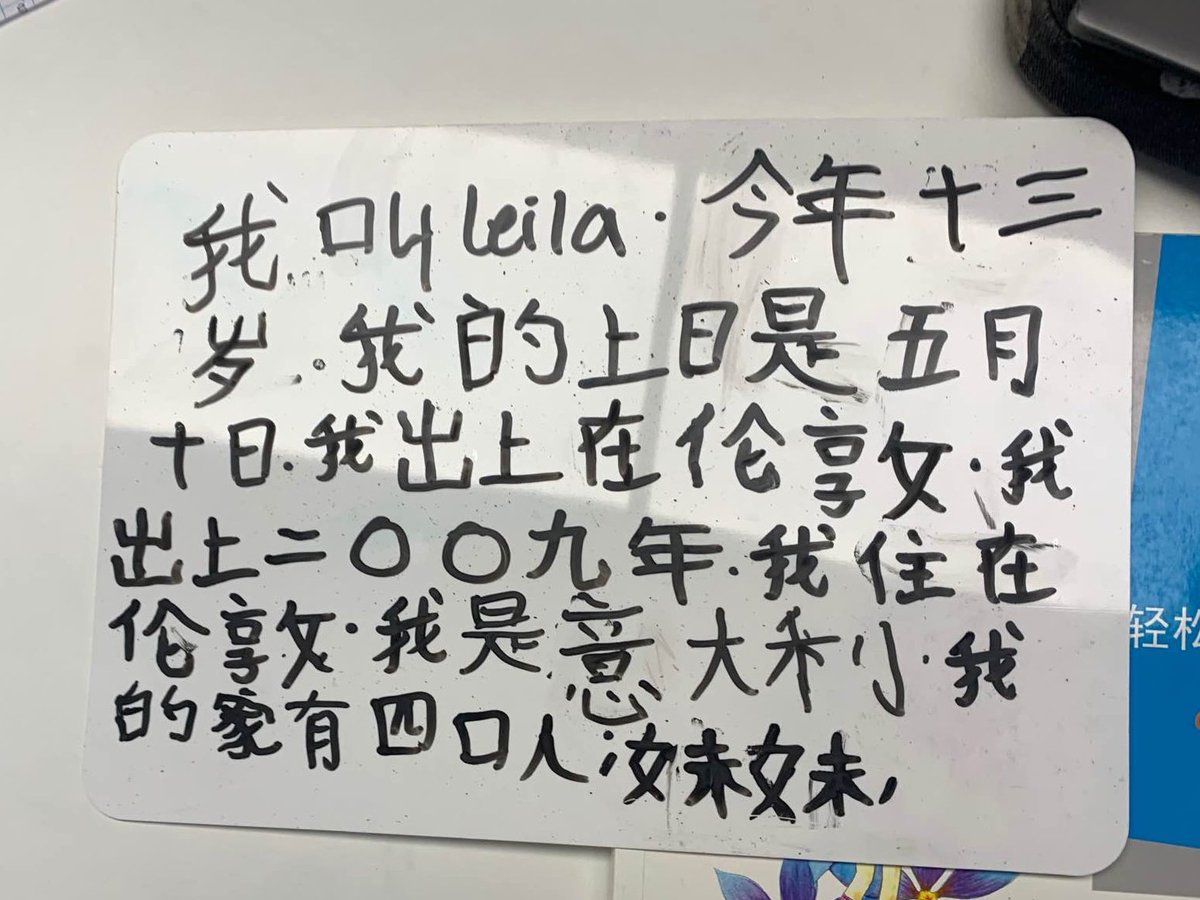 我叫leila.今年十三
岁.我的上日是五月
十日.我出上在伦敦.我
出上二〇〇九年.我住在
伦敦.我是意大利.我
的家有四口人:妹妹,
轻松